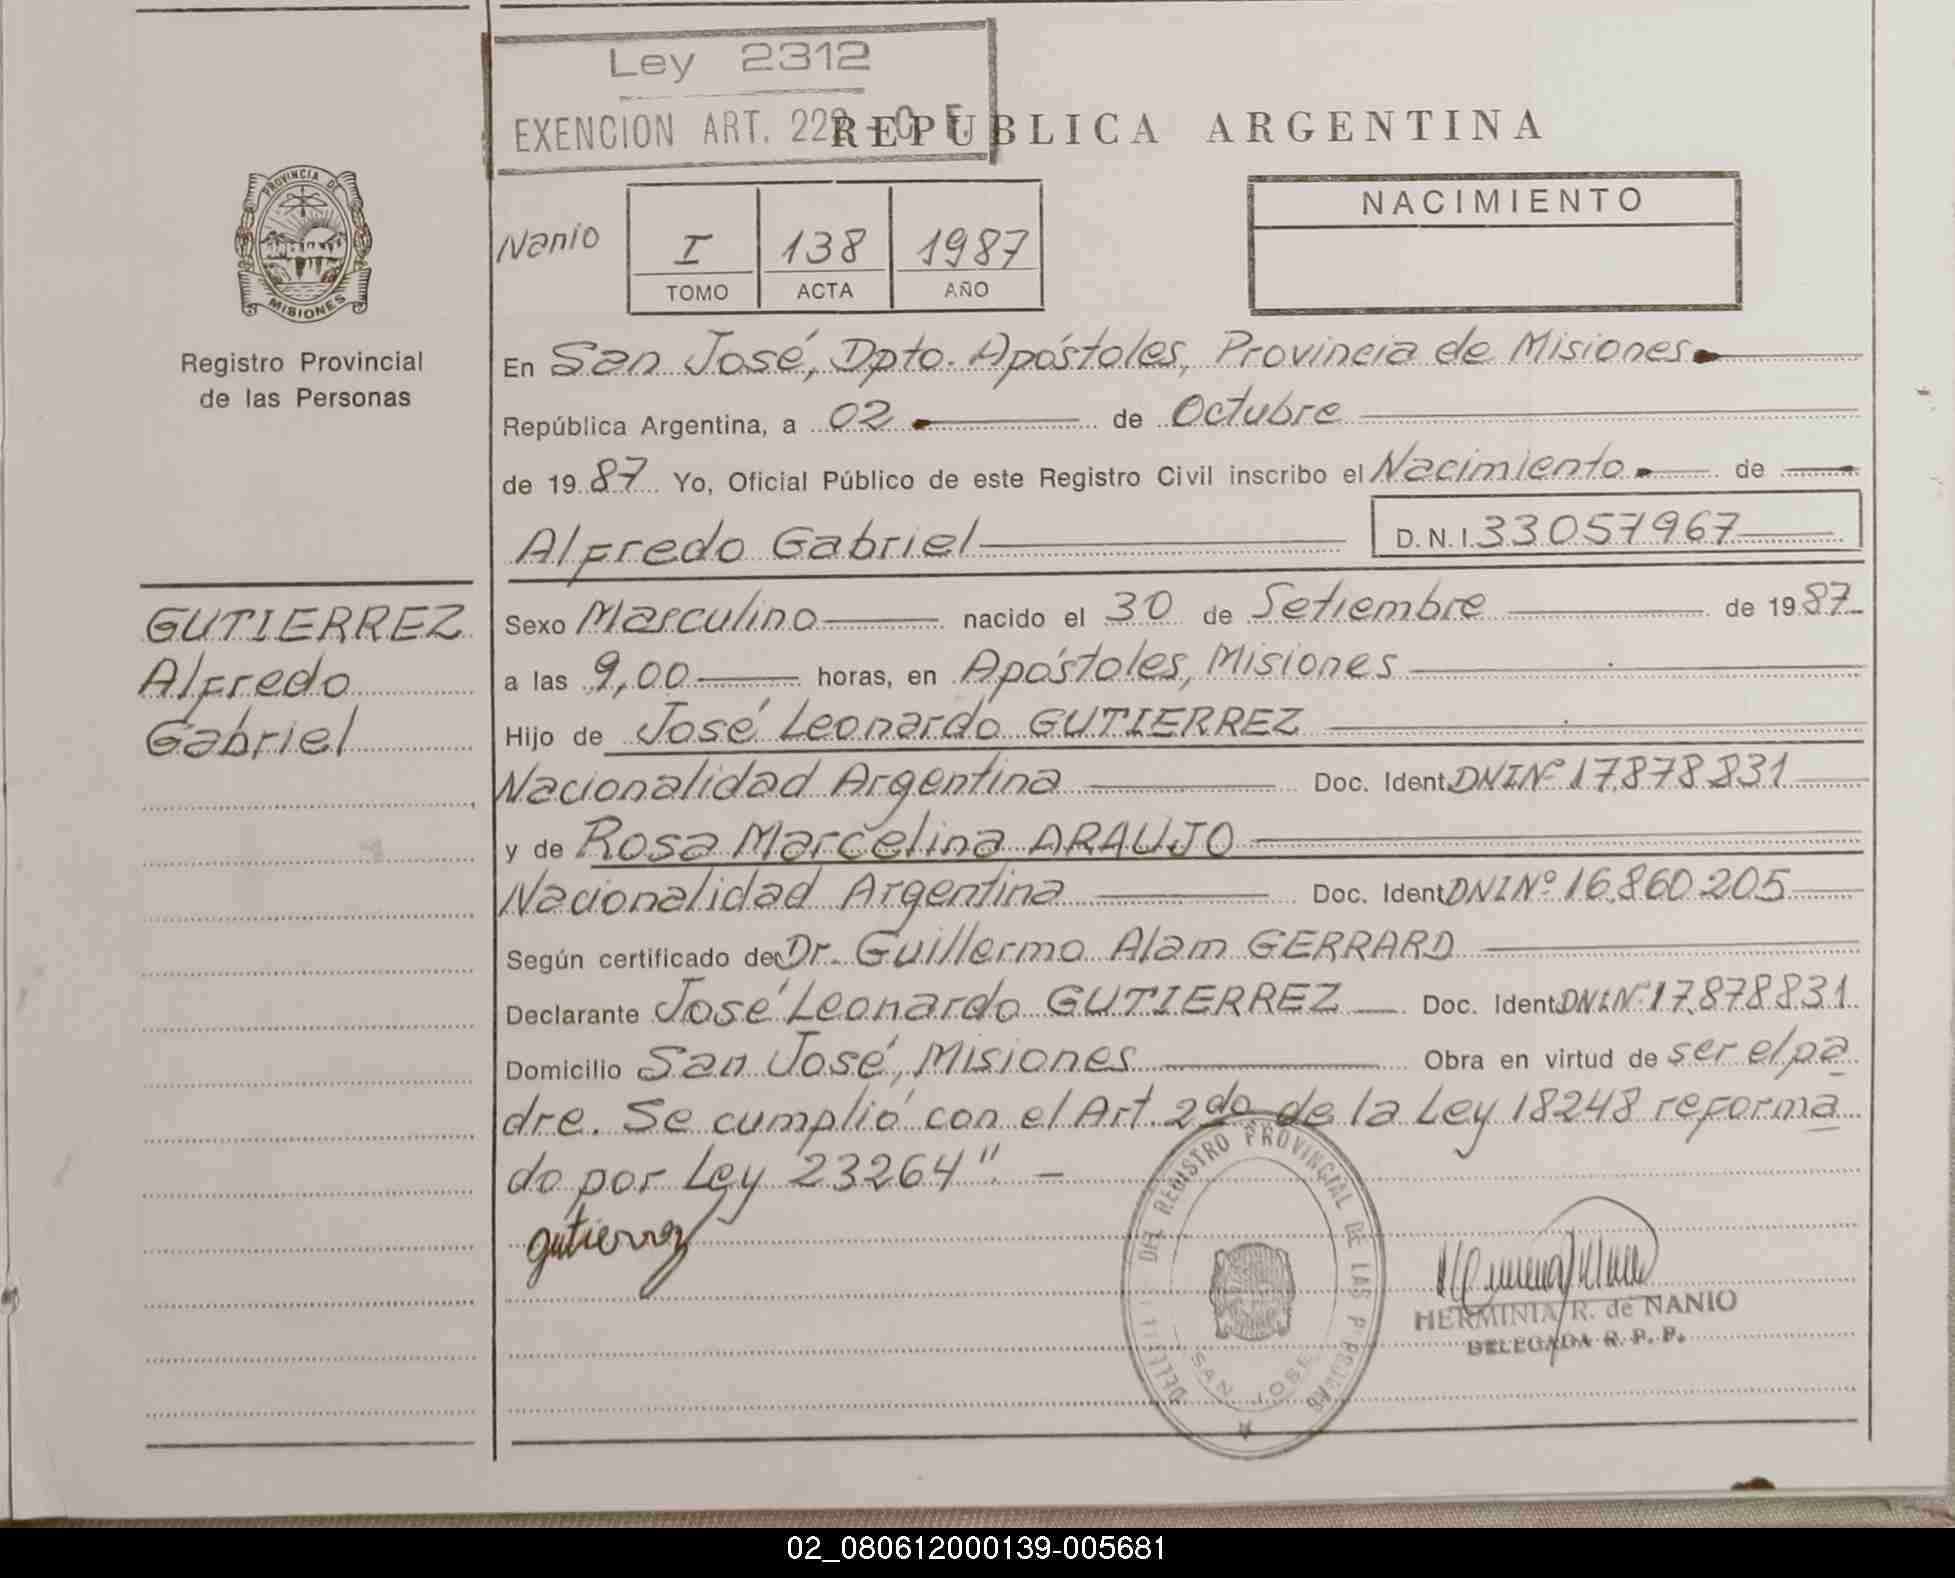 Ley 2312
EXENCION ART. 222 - C. F.
REPUBLICA ARGENTINA
PROVINCIA DE
MISIONES
Registro Provincial
de las Personas
Nanio
I 138 1987
TOMO ACTA AÑO
NACIMIENTO
En San José, Dpto. Apóstoles, Provincia de Misiones
República Argentina, a 02 de Octubre
de 1987 Yo, Oficial Público de este Registro Civil inscribo el Nacimiento de
Alfredo Gabriel D.N.I. 33057967
GUTIERREZ
Alfredo
Gabriel
Sexo Masculino nacido el 30 de Setiembre de 1987
a las 9,00 horas, en Apóstoles, Misiones
Hijo de José Leonardo GUTIERREZ
Nacionalidad Argentina Doc. Ident. DNI Nº 17.878.831
y de Rosa Marcelina ARAUJO
Nacionalidad Argentina Doc. Ident. DNI Nº 16.860.205
Según certificado de Dr. Guillermo Alam GERRARD
Declarante José Leonardo GUTIERREZ Doc. Ident. DNI Nº 17.878.831
Domicilio San José, Misiones Obra en virtud de ser el pa
dre. Se cumplió con el Art. 2do de la Ley 18248 reforma
do por Ley 23264". -
gutierrez
DEL REGISTRO PROVINCIAL DE LAS PERSONAS
SAN JOSE
HERMINIA R. de NANIO
DELEGADA R. P. P.
02_080612000139-005681